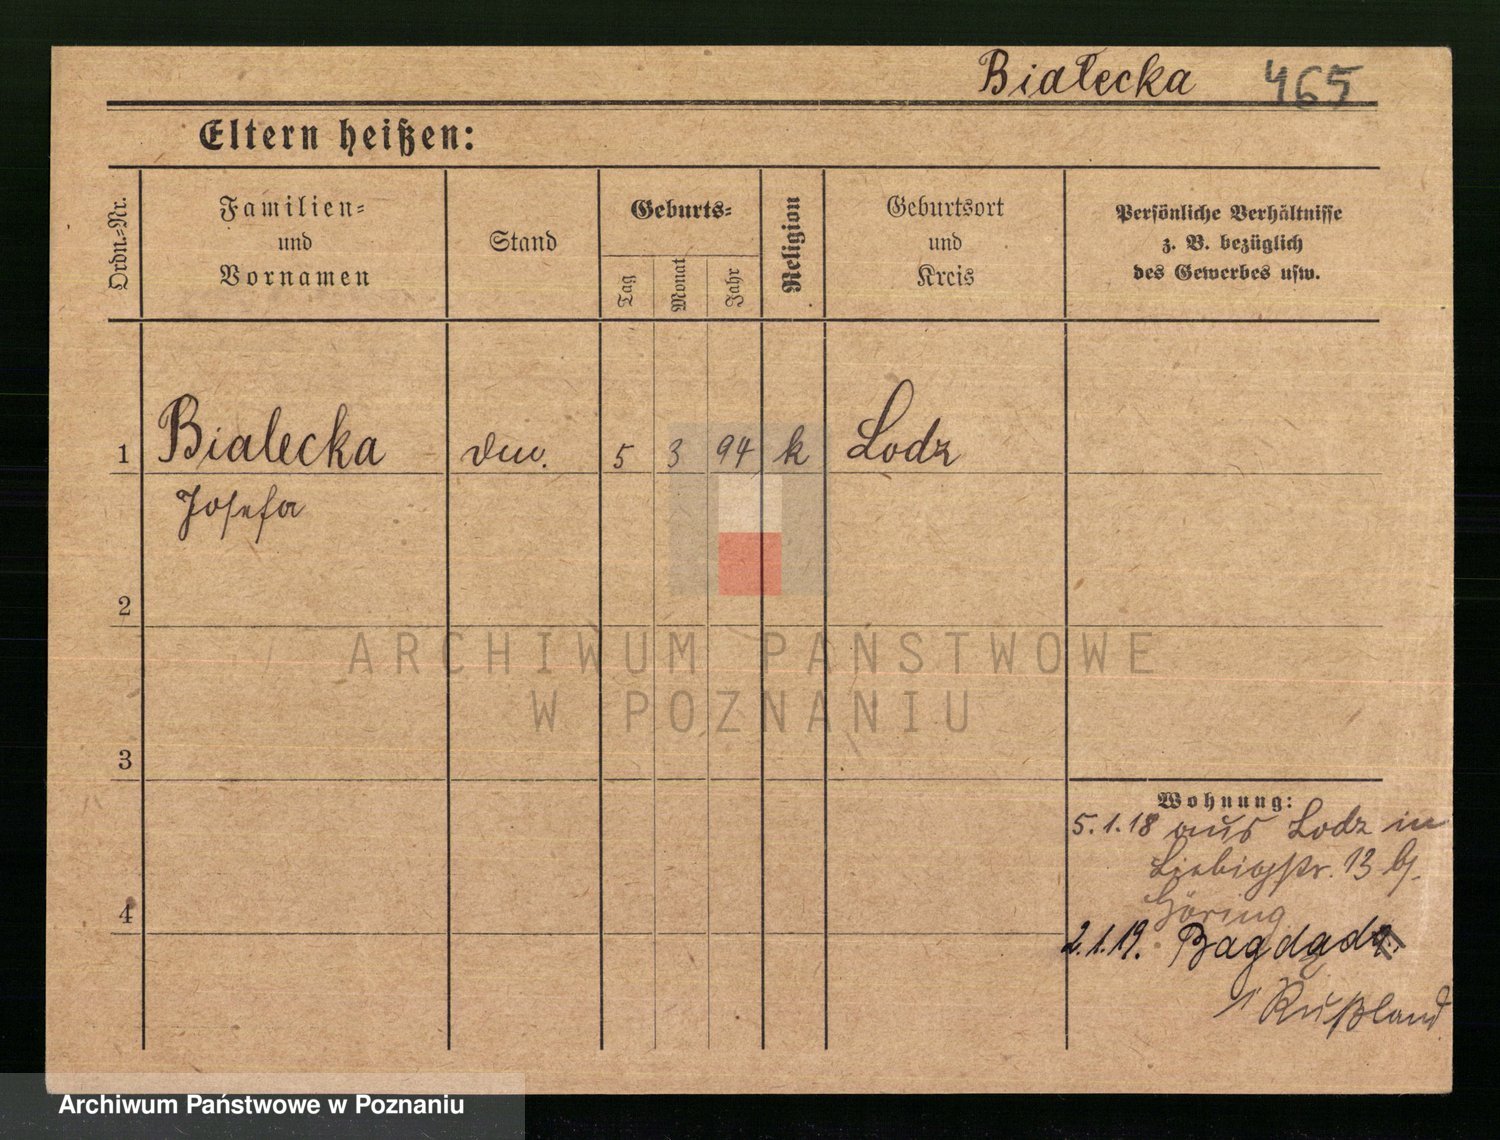 Białecka 465
Eltern heißen:
Ordn.-Nr.
Familien-
und
Vornamen
Stand
Geburts-
Tag
Monat
Jahr
Religion
Geburtsort
und
Kreis
Persönliche Verhältnisse
z. B. bezüglich
des Gewerbes usw.
1 Bialecka 5 3 94 k Lodz
Josefa
2
ARCHIWUM PANSTWOWE
W POZNANIU
3
Wohnung:
5.1.18 aus Lodz in
Liebigstr. 13 b/.
Göring
4
2.1.19.
Rußland
Archiwum Państwowe w Poznaniu